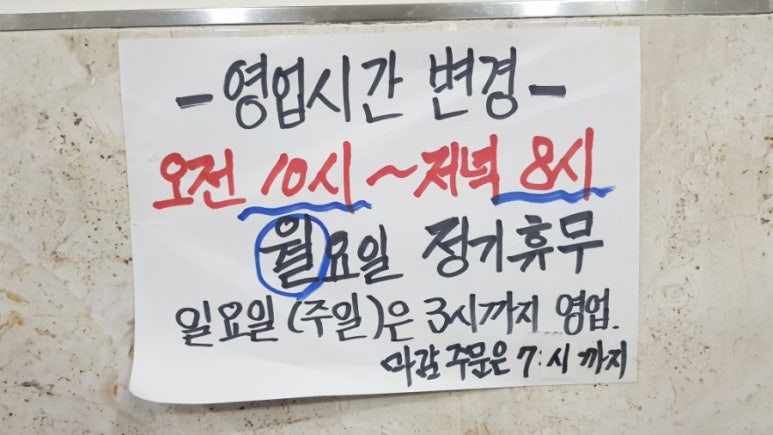 -영업시간 변경-
오전 10시~저녁 8시
월요일 정기휴무
일요일(주일)은 3시까지 영업.
마감 주문은 7:시 까지